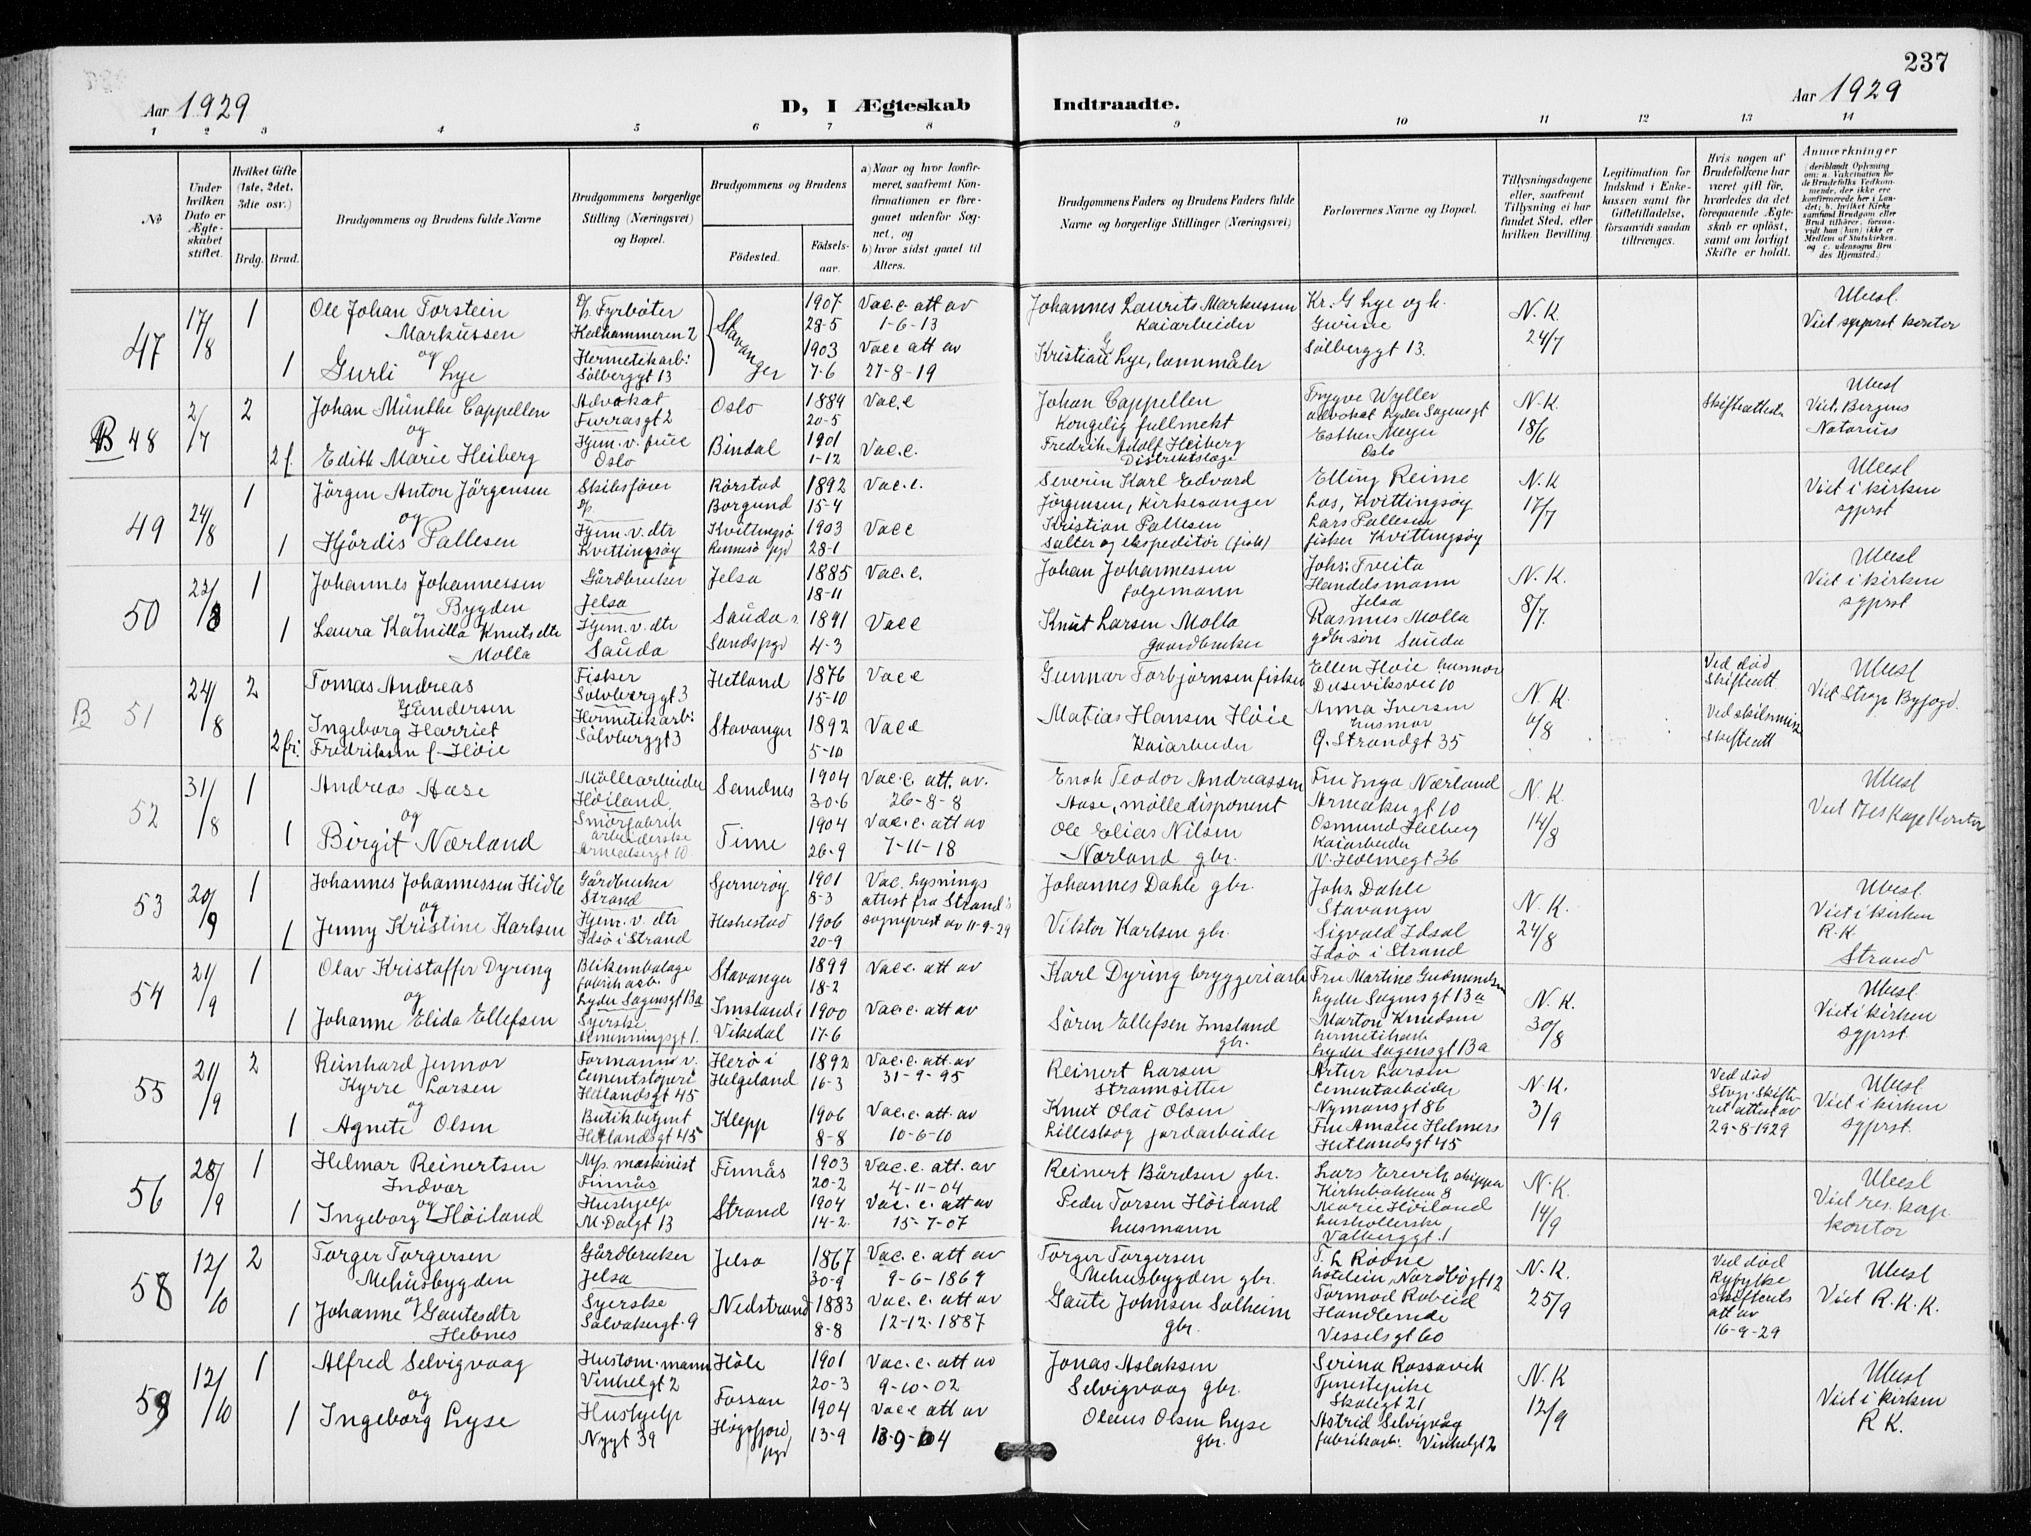 237
Aar 1929
D, I Ægteskab Indtraadte.
Aar 1929
1 2 3 4 5 6 7 8 9 10 11 12 13 14
No
Under hvilken Dato er Ægteskabet stiftet.
Hvilket Gifte (1ste, 2det, 3die osv.)
Brdg. Brud.
Brudgommens og Brudens fulde Navne
Brudgommens borgerlige Stilling (Næringsvei) og Bopæl.
Brudgommens og Brudens
Fødested.
Fødselsaar.
a) Naar og hvor konfirmeret, saafremt Konfirmationen er foregaaet udenfor Sognet, og
b) hvor sidst gaaet til Alters.
Brudgommens Faders og Brudens Faders fulde Navne og borgerlige Stillinger (Næringsvei)
Forlovernes Navne og Bopæl.
Tillysningsdagene eller, saafremt Tillysning ei har fundet Sted, efter hvilken Bevilling.
Legitimation for Indskud i Enkekassen samt for Giftetilladelse, forsaavidt saadan tiltrænges.
Hvis nogen af Brudefolkene har været gift før, hvorledes da det foregaaende Ægteskab er opløst, samt om lovligt Skifte er holdt.
Anmærkninger
47 17/8 1 Ole Johan Torstein Markussen D/s Fyrbøter Kalhammeren 2 Stavanger 1907 28-5 Vac.c. att av 1-6-13 Johannes Laurits Markussen Kaiarbeider Kr. G Lye og h. Gurine N.K. 24/7 Ubesl. Viet sgprst kontor
og
1 Gurli Lye Hermetikarb: Sølberggt 13 1903 7-6 Vacc att av 27-8-19 Kristian G Lye, tønnmåler Sølberggt 13.
B 48 2/7 2 Johan Munthe Cappellen Advokat Furrasgt 2 Oslo 1884 20-5 Vac.c Johan Cappellen Kongelig fullmekt Trygve Wyller advokat Lyder Sagensgt N.K. 18/6 Skifteattest Ubesl Viet. Bergens Notarius
og
2 f. Edith Marie Heiberg Hjem.v. frue Oslo Bindal 1901 1-12 Vac.c. Fredrik Adolf Heiberg Distriktslæge Esther Meyer Oslo
49 24/8 1 Jørgen Anton Jørgensen Skibsfører D/s. Rørstad Borgund 1892 15-4 Vac.c. Severin Karl Edvard Jørgensen, Kirkesanger Elling Reime Los, Kvittingsøy N.K 17/7 Ubesl Viet i kirken sgprst
og
1 Hjørdis Pallesen Hjem.v.dtr Kvittingsøy Kvittingsø Rennesø pgd 1903 28-1 Vacc Kristian Pallesen salter og ekspeditør (fisk) Lars Pallesen fisker Kvittingsøy
50 23/8 1 Johannes Johannessen Bygden Gårdbruker Jelsa Jelsa 1885 18-11 Vac.c. Johan Johannessen folgemann Johs: Tveita Handelsmann Jelsa N.K. 8/7. Ubesl Viet i kirken sgprst
og
1 Laura Kamilla Knutsdtr Molla Hjem.v.dtr Sauda Sauda s. Sandspgd 1891 4-3 Vacc Knut Larsen Molla gaardbruker Rasmus Molla gdbr.søn Sauda
B 51 24/8 2 Tomas Andreas Gundersen Fisker Sølvberggt 3 Hetland 1876 15-10 Vacc Gunnar Torbjørnsen fisker Ellen Høie husmor Dusevikveien 10 N.K. 6/8 Ved død Skifteatt Ubesl Viet Strgr Byfogd.
2 fr: Ingeborg Harriet Fredriksen f. Høie Hermetikarb: Sølvberggt 3 Stavanger 1892 5-10 Vacc Matias Hansen Høie Kaiarbeider Anna Iversen husmor Ø. Strandgt 35 Ved skilsmisse Skifteatt
52 31/8 1 Andreas Aase Møllearbeider Høiland Sandnes 1904 30-6 Vac.c. att.av. 26-8-8 Enok Teodor Andreassen Aase, mølledisponent Fru Inga Nærland Arneåkergt 10 N.K. 14/8 Ubesl
og
1 Birgit Nærland Smørfabrik arbeiderske Time 1904 26-9 Vac.c. att av 7-11-18 Ole Elias Nilsen Nærland gbr. Osmund Helberg Kaiarbeider N. Holmegt 36
53 20/9 1 Johannes Johannessen Hidle Gårdbruker Strand Sjernerøy 1901 8-3 Vac. Lysnings attest fra Strand's sogneprest av 11-9-29 Johannes Dahle gbr. Johs. Dahle Stavanger N.K. 24/8 Ubesl. Viet i kirken R.K Strand
og
1 Jenny Kristine Karlsen Hjem.v.dtr Idsø i Strand Heskestad 1906 20-9 Viktor Karlsen gbr. Sigvald Idsal Idsø i Strand
54 21/9 1 Olav Kristoffer Dyring Blikemballage fabrikarb. Lyder Sagensgt 13a Stavanger 1899 18-2 Vacc. att av Karl Dyring bryggeriarb Fru Martine Gudmundsen Lyder Sagensgt 13a N.K. 30/8 Ubesl. Viet i kirken sgprst.
og
1 Johanne Elida Ellefsen Syerske. Almenningsgt 1. Imsland i Vikedal 1900 17-6 Vac.c. att av Søren Ellefsen Imsland gbr. Marton Knudsen hermetikarb Lyder Sagensgt 13a
55 21/9 2 Reinhard Junnor Kyrre Larsen Formann v. Cementstøperi Hetlandsgt 45 Herø i Helgeland 1892 16-3 Vac.c. att.av 31-9-95 Reinert Larsen strannsitter Artur Larsen Cementarbeider Nymansgt 86 N.K. 3/9 Ved død Stvgr. Skifteret attest av 29-8-1929 Ubesl Viet i kirken sgprst.
og
1 Agnete Olsen Butikbetjent Hetlandsgt 45 Klepp 1906 8-8 Vac.c. att. av 10-6-10 Knut Olai Olsen Lilleskog jordarbeider Fru Amalie Helmers Hetlandsgt 45
56 28/9 1 Helmar Reinertsen Indvær M/s. maskinist Finnås Finnås 1903 20-2 Vac.c. att. av 4-11-04 Reinert Bårdsen gbr. Lars Ervik, skipper Kirkebakken 8 N.K. 14/9 Ubesl Viet res. kap. kontor
og
1 Ingeborg Høiland Hushjelp M. Dalgt 13 Strand 1904 14-2. Vac. c. att av 15-7-07 Peder Torsen Høiland husmann Marie Høiland husholderske Valberggt. 1
58 12/10 2 Torger Torgersen Mehusbygden Gårdbruker Jelsa Jelsa 1867 30-9 Vac.c. att av 9-6-1869 Torger Torgersen Mehusbygden gbr. T. L Roone hoteleier, Nordbøgt 12 N.K. 25/9 Ved død Ryfylke skifterets att av 16-9-29 Ubesl Viet R.K.K.
og
1 Johanne Gautesdtr Hebnes Syerske Sølvberggt. 9 Nedstrand 1883 8-8 Vac.c. att av 12-12-1887 Gaute Johnsen Solheim gbr. Tormod Robeid Handlende Vesselsgt 60
59 12/10 1 Alfred Selvigvaag Hustom.mann Vinkelgt 2 Høle 1901 20-3 Vac.c. att av 9-10-02 Jonas Aslaksen Selvigvaag gbr. Serina Rossavik Tjenestepike Skolegt 21 N.K 12/9 Ubesl Viet i kirken R K.
og
1 Ingeborg Lyse Hushjelp Nygt 39 Forsan Høgsfjord pgd 1904 13-9 Vacc att av 13-9-04 Oleus Olsen Lyse gbr. Astrid Selvigvåg fabrikarb: Vinkelgt 2